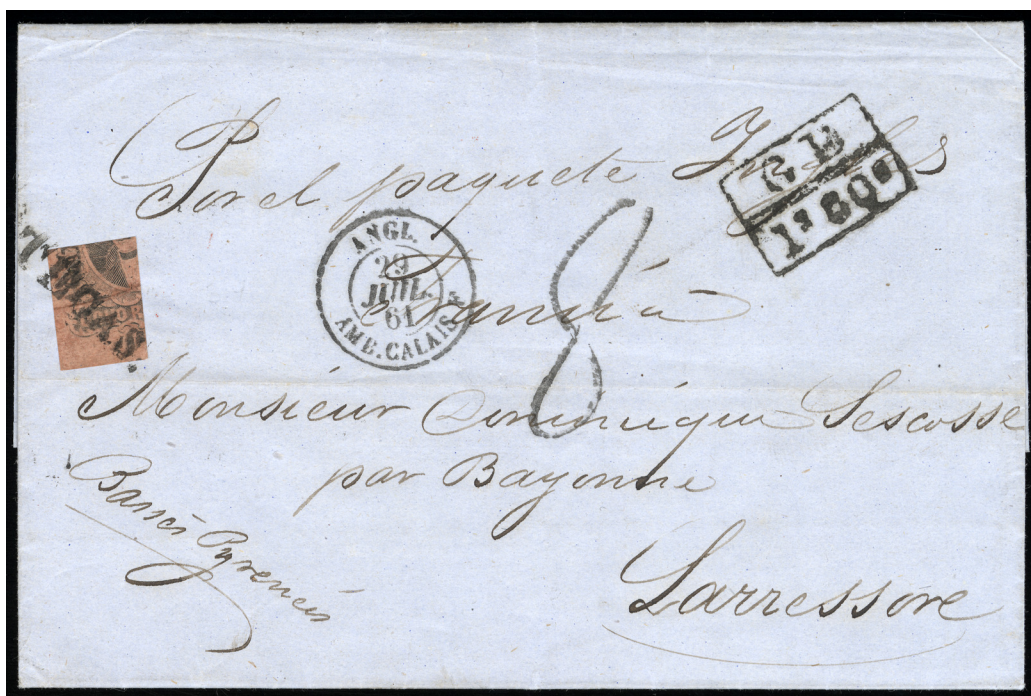 Por el paquete Ingles
G B
1F 80c
ANGL.
29
JUIL.
61
AMB. CALAIS A
8
Francia
Monsieur Dominique Lescosse
par Bayonne
Basses Pyrenées
Larressore